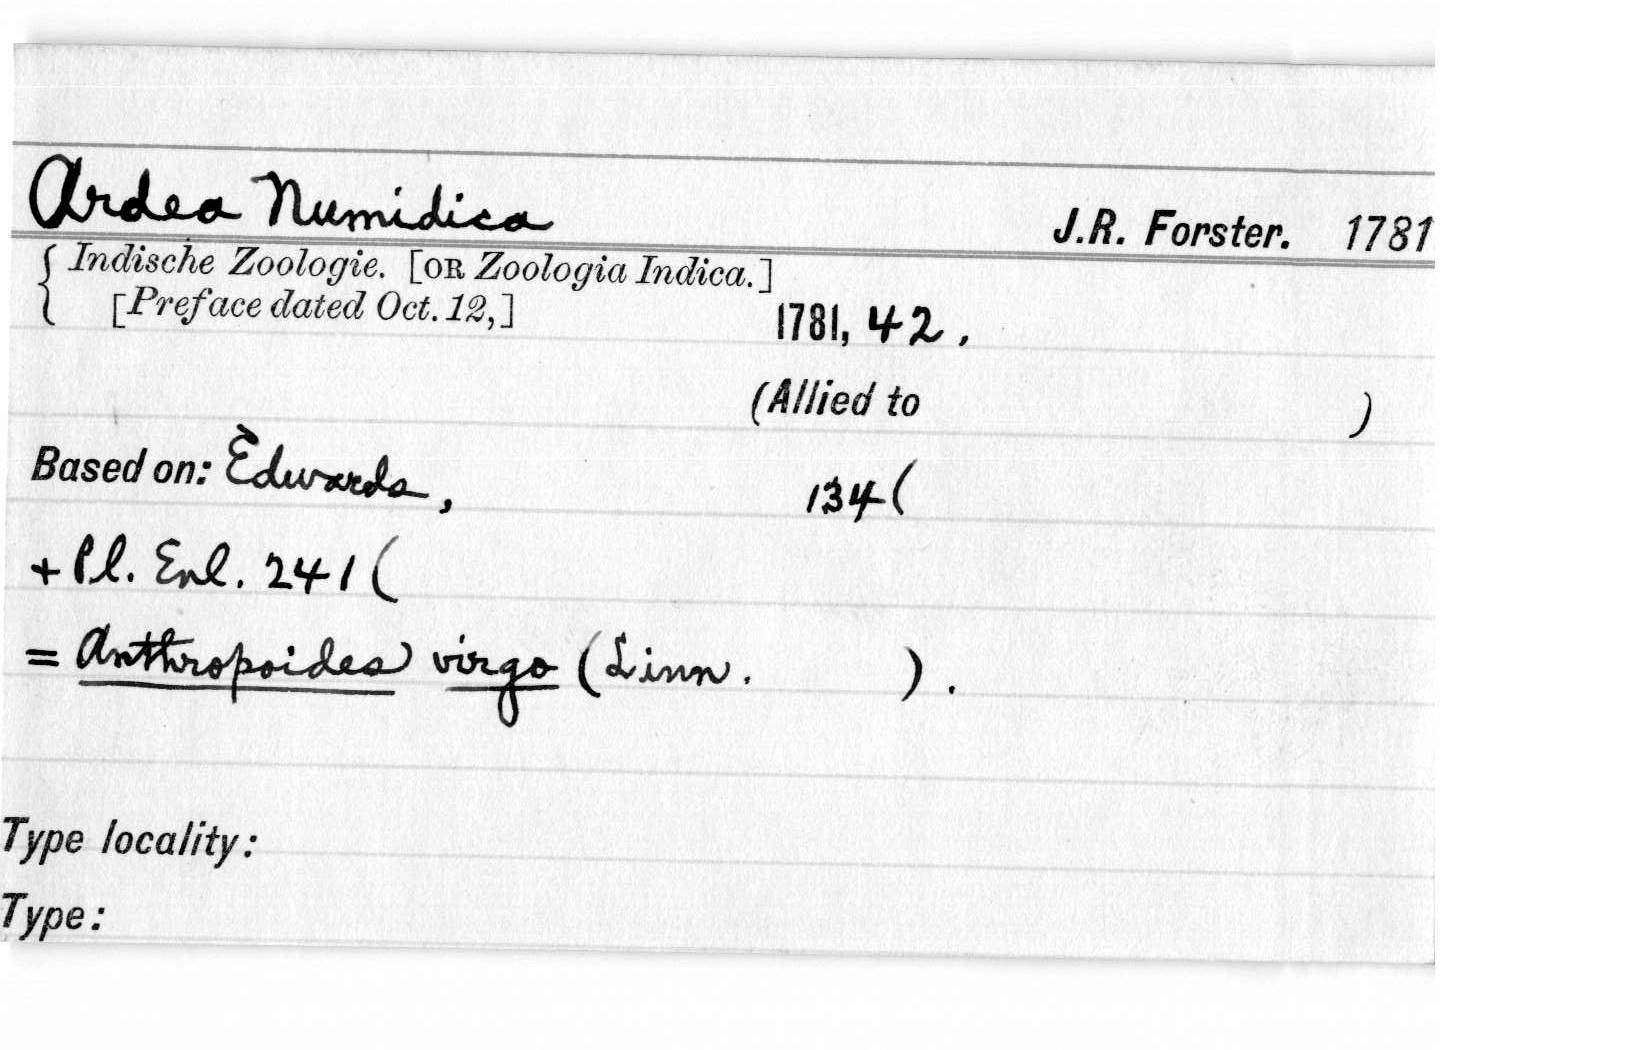 Ardea Numidica J.R. Forster. 1781
{ Indische Zoologie. [OR Zoologia Indica.]
[Preface dated Oct. 12,] 1781, 42.
(Allied to )
Based on: Edwards, 134 (
+ Pl. Enl. 241 (
= Anthropoides virgo (Linn. ).
Type locality:
Type: